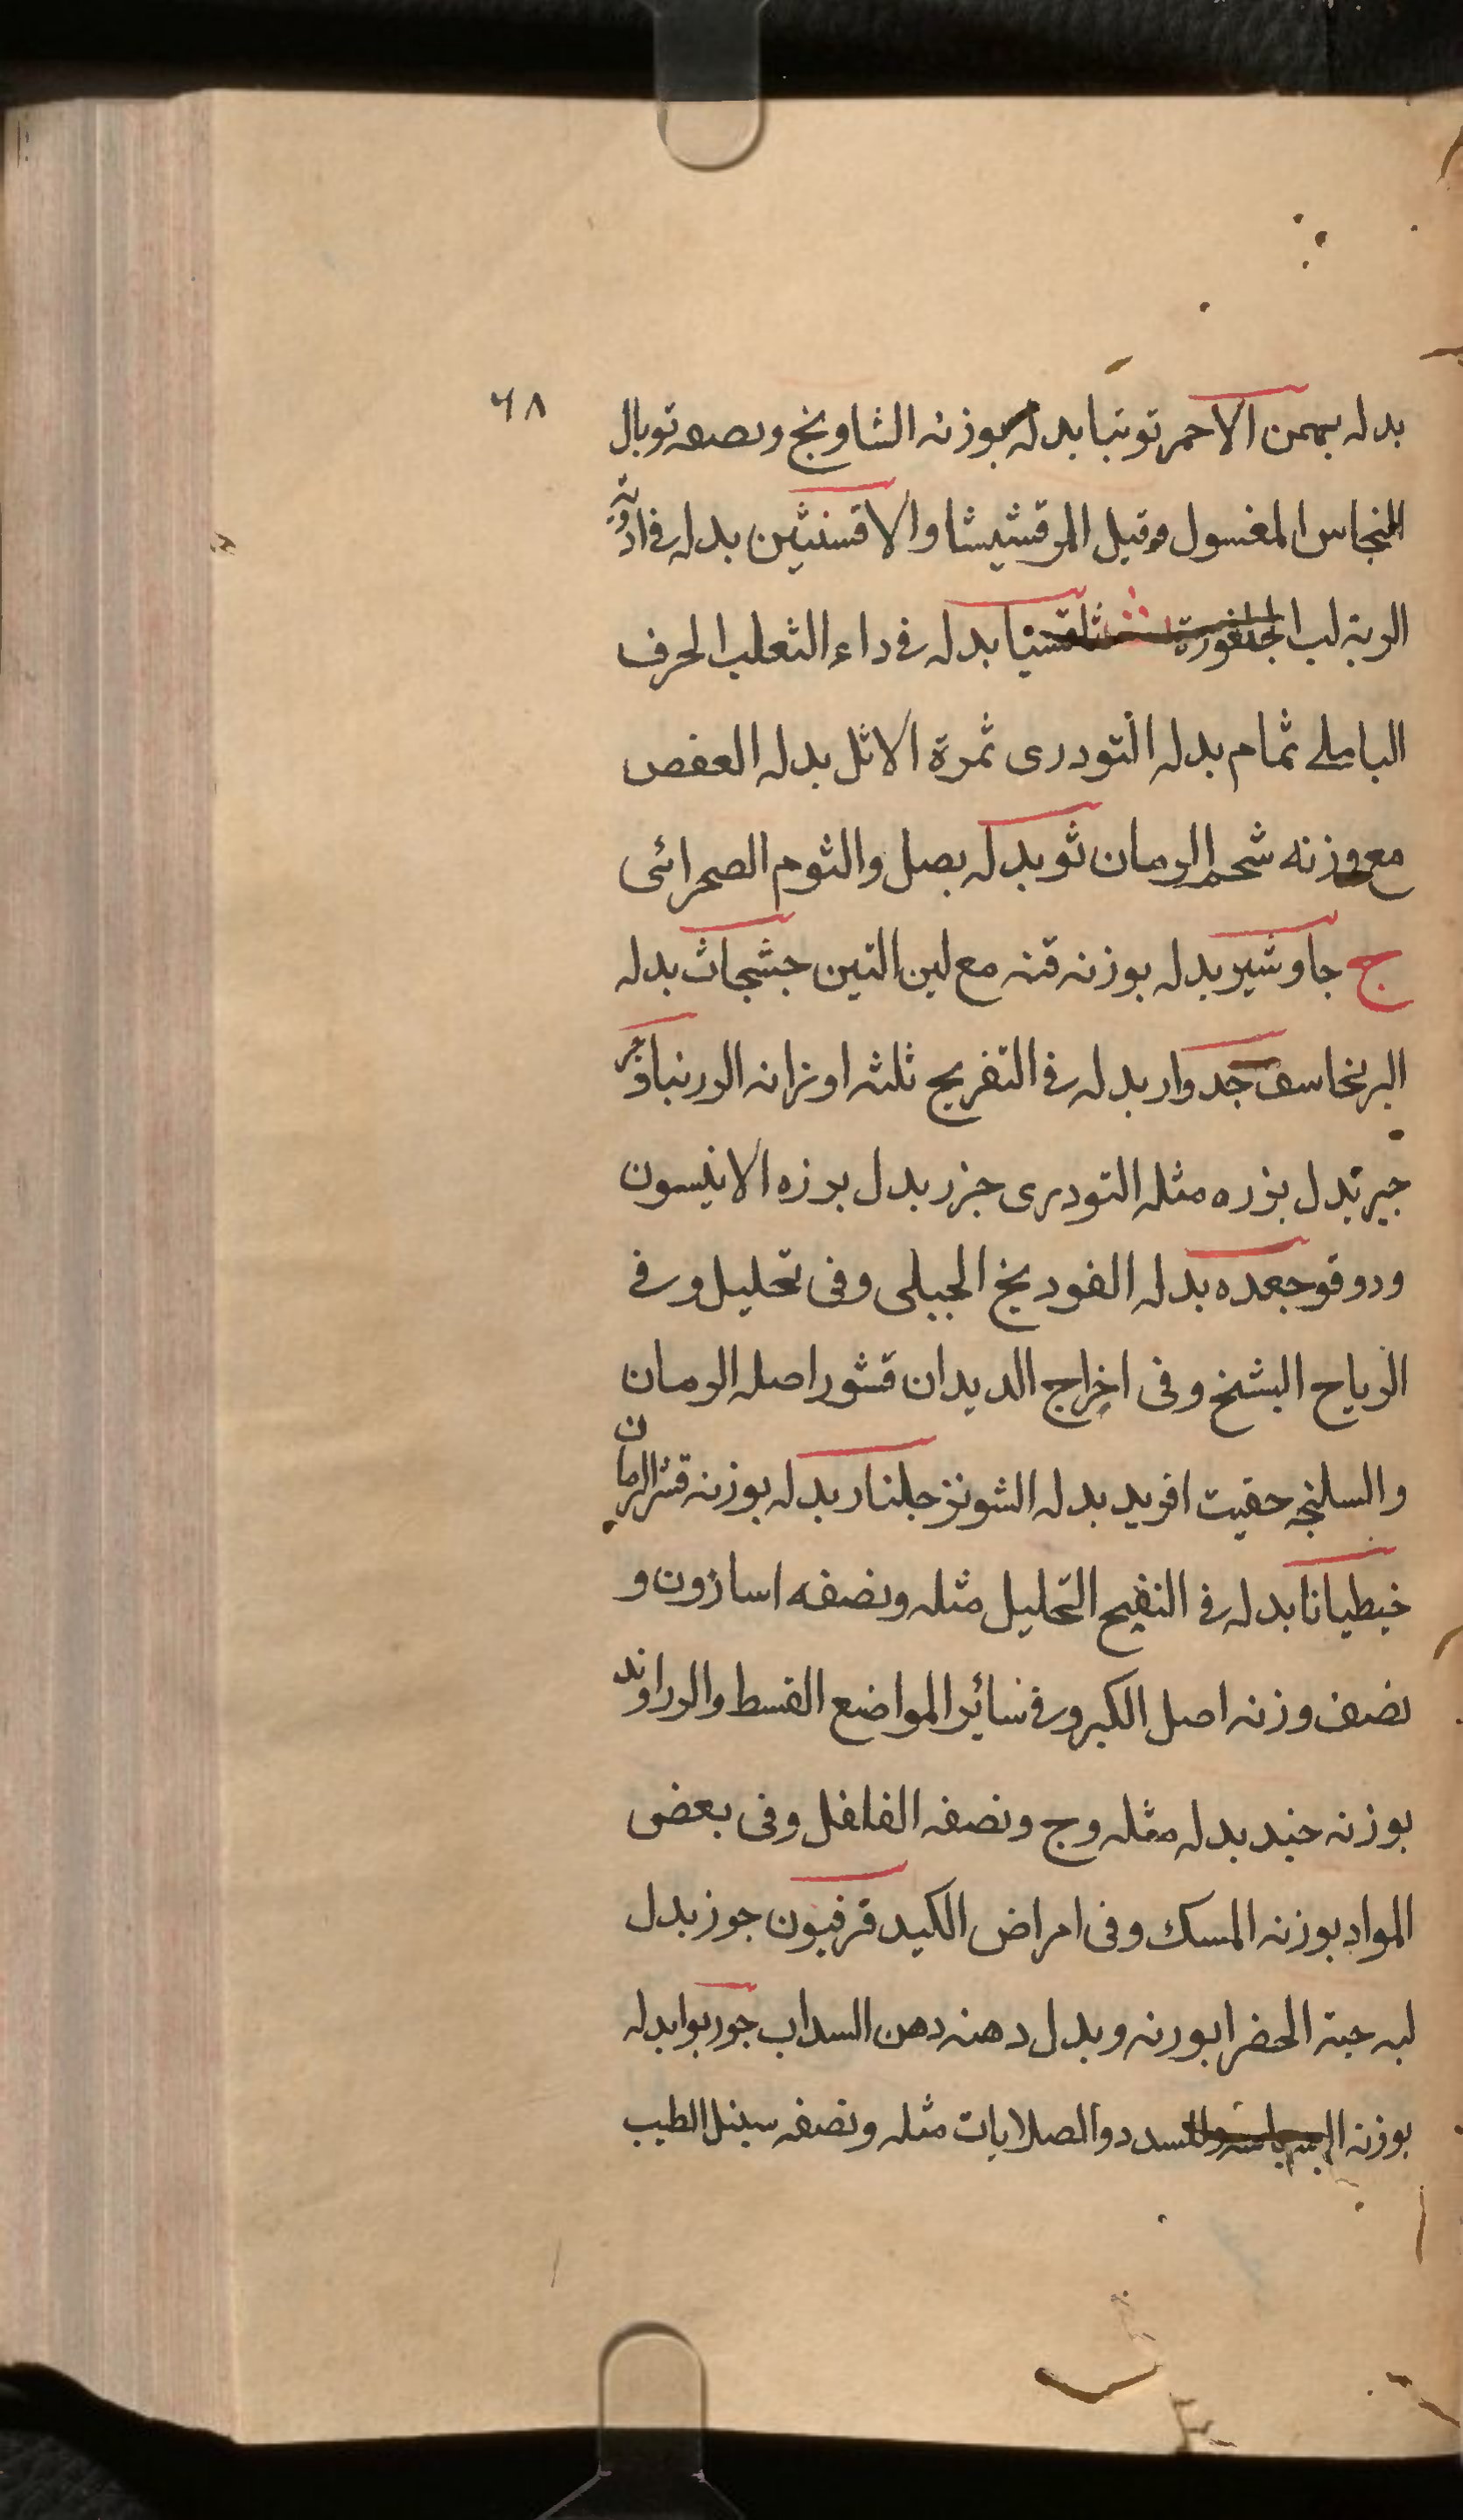 ٦٨
بدله بهمن الاحمر توتيا بدله بوزنه الشاونج ونصفه توبال
النحاس المغسول وقيل المرقشيشا والاقسنتين بدله فى ادوية
الرية لب بدله فى داء الثعلب الحرف
البابلى ثمام بدله التودرى ثمرة الاثل بدله العفص
مع وزنه شحم الرمان ثو بدله بصل والثوم الصحرائى
ج جاوشير بدله بوزنه قنه مع لبن التين جشجاث بدله
البرنجاسف جدوار بدله فى التفريح ثلثه اوزانه الزرنباد
جير بدل بزره مثله التودرى جزر بدل بزره الانيسون
ودوقو جعده بدله الفودنج الجبلى وفى تحليل وفى
الرياح الشيخ وفى اخراج الديدان قشور اصله الرمان
والسلنجه حقيت افريد بدله الشونز جلنار بدله بوزنه قشر الرمان
خيطيانا بدله فى النفيح التحليل مثله ونصفه اسارون و
نصف وزنه اصل الكبر وفى سائر المواضع القسط والزراوند
بوزنه جند بدله مثله وج ونصفه الفلفل وفى بعض
المواد بوزنه المسك وفى امراض الكبد قرفيون جوز بدل
لبه حبة الحضرا بورنه وبدل دهنه دهن السداب جوربوا بدله
بوزنه دوالصلابات مثله ونصفه سنبل الطيب